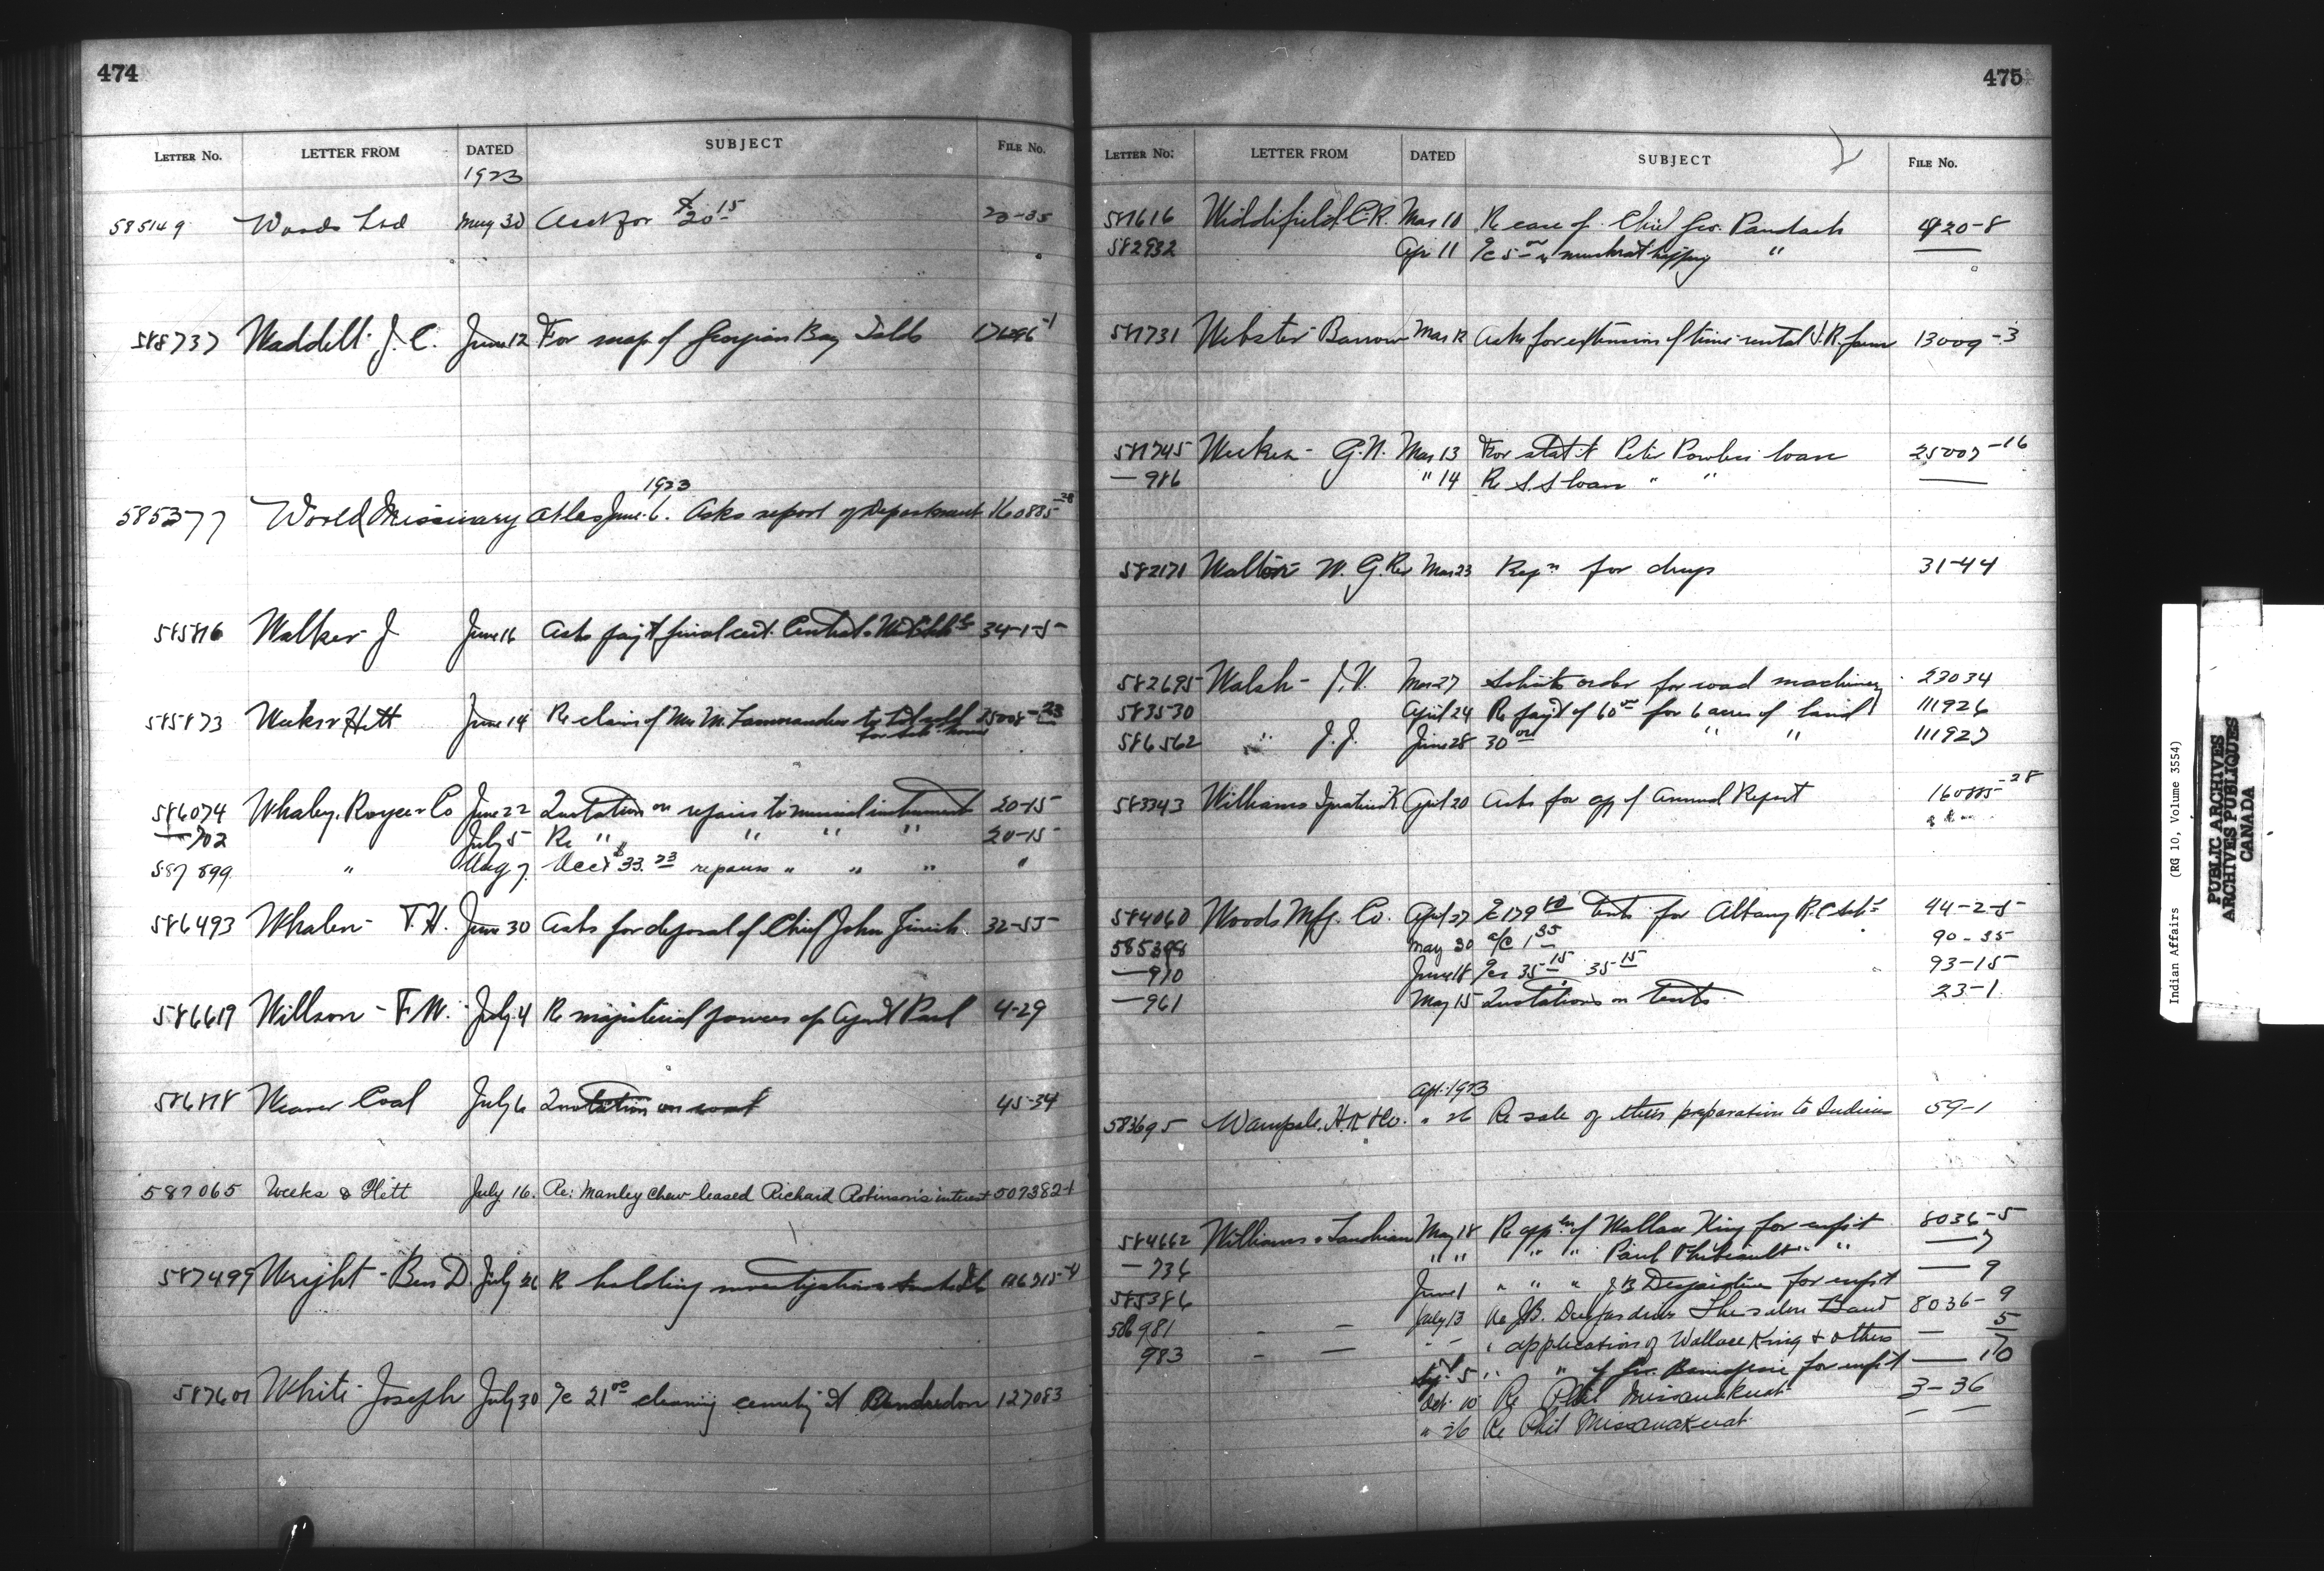 474
LETTER No. LETTER FROM DATED SUBJECT FILE No.
1923
585149 Woods Ltd May 30 Acct for $20 15 20-35
588737 Waddell J. C. June 12 For map of Georgian Bay Islds -1
1923
585377 World Missionary Atlas June 6. Asks report of Department 160885-28
585816 Walker J June 16 Asks pay't final cert. 34-1-5
585873 Weeks & Hett June 14 Re claim of Mrs M. Lamorandiere to 25008-23
for sch. house
586074 Whaley, Royce & Co June 22 Quotation on repairs to musical instrument 20-15
—702 July 5 Re " " " " 20-15
587899 " Aug 7. Acct $33.23 repairs " " " "
586493 Whalen - T. H. June 30 Asks for deposal of Chief John 32-55
586619 Willson - F. W. July 4 Re magisterial powers of Agent Paul 4-29
586818 Weaver Coal July 6 Quotation on coal 45-34
587065 Weeks & Hett July 16. Re: Manley Chew leased Richard Robinson's interest 507382-1
587499 Wright - Ben D. July 26 Re holding investigation
587601 White Joseph July 30 a/c 21 00 cleaning cemetery at 127083
475
LETTER No. LETTER FROM DATED SUBJECT FILE No.
581616 Widdifield C. R. Mar 10 Re case of Chief Geo. Paudash 420-8
582932 Apr 11 a/c 5 00 muskrat "
581731 Webster Barrow Mar 12 Asks for extension of time rental farm 13009-3
581745 Weekes - G. N. Mar 13 For stat't Peter Powless loan 25007-16
—986 " 14 Re S.S loan " "
582171 Walton W. G. Rev Mar 23 Reqn for drugs 31-44
582695 Walsh - J. V. Mar 27 Solicits order for road machinery 23034
583530 April 24 Re pay't of 60 00 for 6 acres of land 111926
586562 " J. J. June 28 30 00 " " 111927
583343 Williams April 20 Asks for cpy of Annual Report 160885-28
584060 Woods Mfg. Co. April 27 a/c 179 80 Tents for Albany R. C Sch 44-2-5
585398 May 30 a/c 1 35 90-35
—910 June 18 35 15 35 15 93-15
—961 May 15 Quotations on tents 23-1
Apr. 1923
583695 Wampole. H. K & Co. " 26 Re sale of their preparation to Indians 59-1
584662 Williams & May 18 Re appln of Wallace King for enfr't 8036-5
—736 " " " " Paul Thibeault " " — 7
585386 June 1 " " " J. B. Desjardins for enfr't — 9
586981 - — July 13 Re J.B. Desjardins Thessalon Band 8036-9
983 - — - - " application of Wallace King & others — 5
5 " " of Geo. for enfr't — 10
Oct. 10 Re Phil Missanakuat 3-36
" 26 Re Phil Missanakuat — —
Indian Affairs (RG 10, Volume 3554)
PUBLIC ARCHIVES
ARCHIVES PUBLIQUES
CANADA